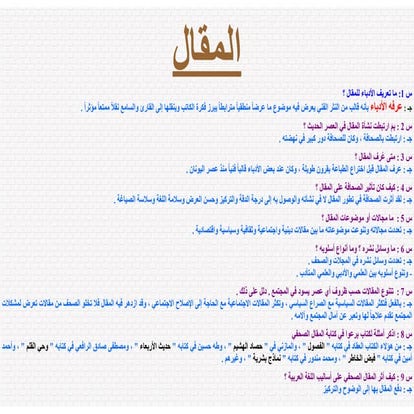 المقال
س 1: ما تعريف الأدباء للمقال ؟
جـ : عرفه الأدباء بأنه قالب من النثر الفني يعرض فيه موضوع ما عرضاً منطقياً مترابطاً يبرز فكرة الكاتب وينقلها إلى القارئ والسامع نقلاً ممتعاً مؤثراً .
س 2 : بم ارتبطت نشأة المقال في العصر الحديث ؟
جـ : ارتبطت بالصحافة ، وكان للصحافة دور كبير في نهضته .
س 3 : متى عُرف المقال ؟
جـ : عرف المقال قبل اختراع الطباعة بقرون طويلة ، وكان عند بعض الأدباء قالباً فنياً منذ عصر اليونان .
س 4 : كيف كان تأثير الصحافة على المقال ؟
جـ : لقد أثرت الصحافة في تطور المقال لا في نشأته والوصول به إلى درجة الدقة والتركيز وحسن العرض وسلامة اللغة وسلاسة الصياغة .
س 5 : ما مجالات أو موضوعات المقال ؟
جـ : تعددت مجالاته وتنوعت موضوعاته ما بين مقالات دينية واجتماعية وثقافية وسياسية واقتصادية .
س 6 : ما وسائل نشره ؟ وما أنواع أسلوبه ؟
جـ : تعددت وسائل نشره في المجلات والصحف .
- وتنوع أسلوبه بين العلمي والأدبي والعلمي المتأدب .
س 7 : تتنوع المقالات حسب ظروف أي عصر يسود في المجتمع . دلل على ذلك .
جـ : بالفعل فتكثر المقالات السياسية مع الصراع السياسي ، وتكثر المقالات الاجتماعية مع الحاجة إلى الإصلاح الاجتماعي ، وقد ازدهر فيه المقال فلا تخلو الصحف من مقالات تعرض لمشكلات
المجتمع تقدم علاجاً لها وتعبر عن آمال المجتمع وآلامه .
س 8 : أذكر أمثلة لكتاب برعوا في كتابة المقال الصحفي
جـ : من هؤلاء الكتاب العقاد في كتابه " الفصول " ، والمازني في " حصاد الهشيم " ، وطه حسين في كتابه " حديث الأربعاء " ، ومصطفى صادق الرافعي في كتابه " وحي القلم " ، وأحمد
أمين في كتابه " فيض الخاطر " ، ومحمد مندور في كتابه " نماذج بشرية " ، وغيرهم .
س 9 : كيف أثر المقال الصحفي على أساليب اللغة العربية ؟
جـ : دفع المقال بها إلى الوضوح والتركيز